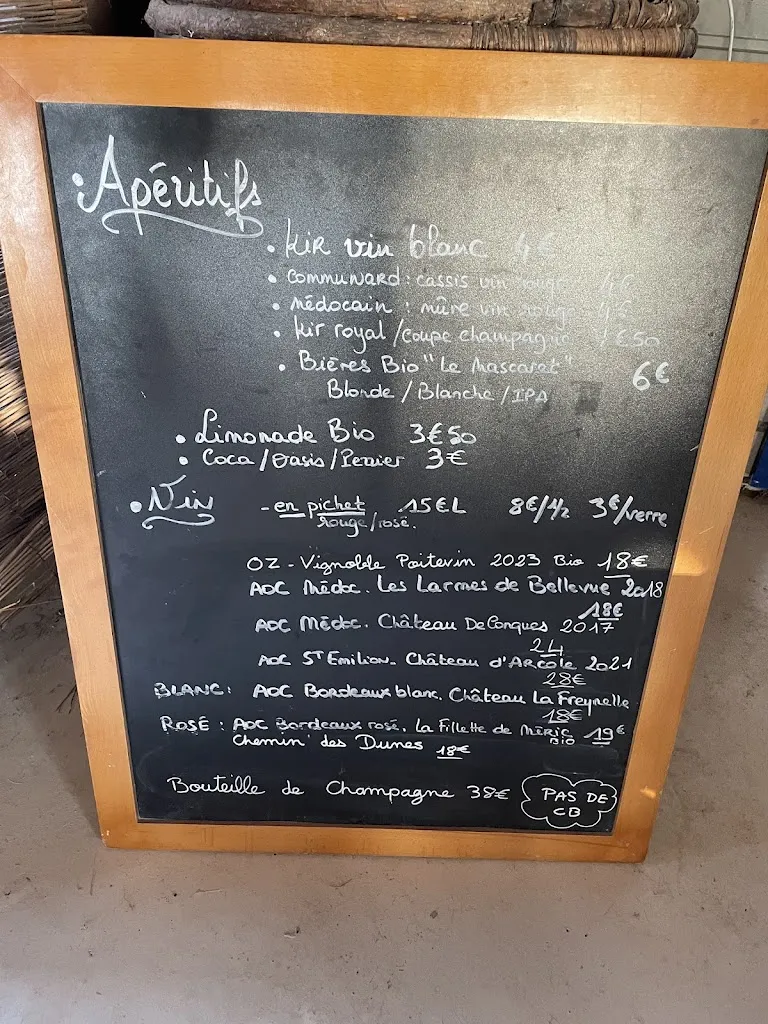 • Apéritifs
• Kir vin blanc 4€
• Communard : cassis vin rouge 4€
• Médocain : mûre vin rouge 4€
• Kir royal / coupe champagne €50
• Bières Bio "Le Mascaret" 6€
Blonde / Blanche / IPA
• Limonade Bio 3€50
• Coca / Oasis / Perrier 3€
• Vin - en pichet 15€L 8€/1/2 3€/verre
rouge/rosé.
OZ - Vignoble Poitevin 2023 Bio 18€
AOC Médoc. Les Larmes de Bellevue 2018
18€
AOC Médoc. Château De Conques 2017
24
AOC ST Emilion. Château d'Arcole 2021
28€
BLANC : AOC Bordeaux blanc. Château La Freynelle
18€
ROSÉ : AOC Bordeaux rosé. La Fillette de Méric BIO 19€
Chemin des Dunes 18€
Bouteille de Champagne 38€
PAS DE
CB